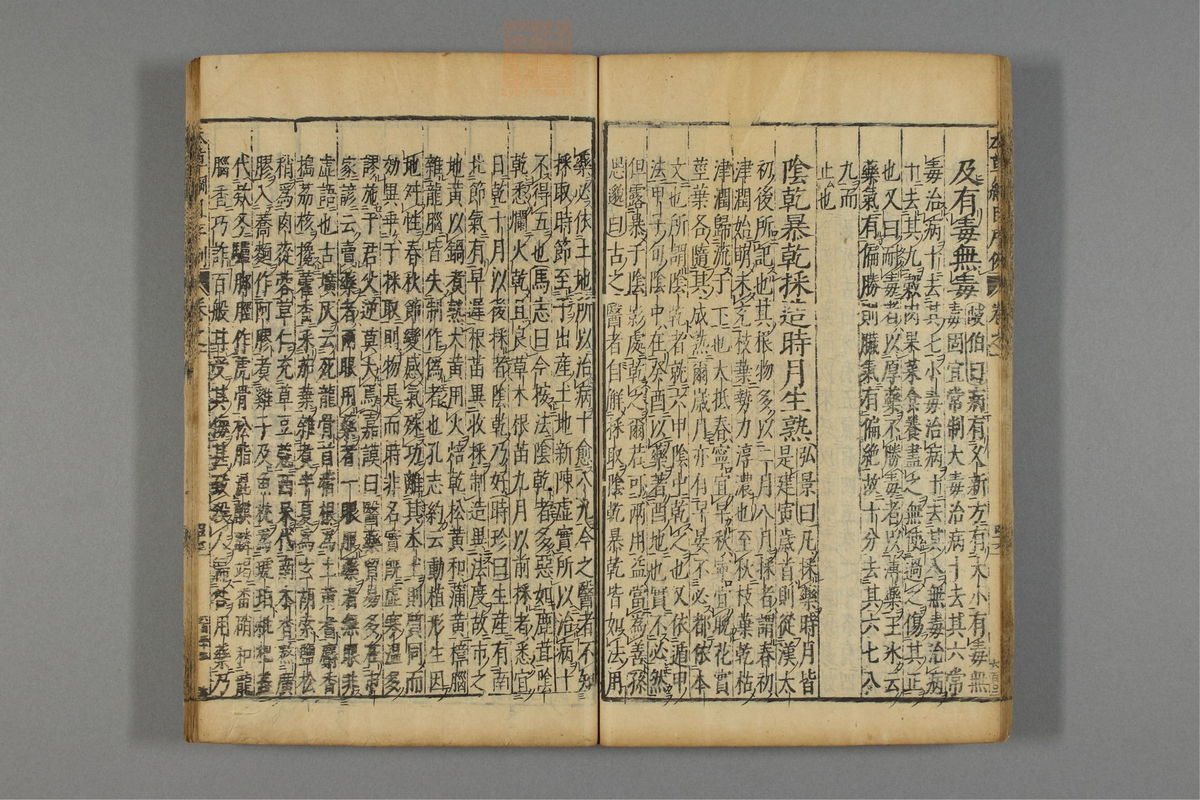 及有毒無毒
岐伯曰病有久新方有大小有毒無
毒固宜常制大毒治病十去其六常
毒治病十去其七小毒治病十去其八無毒治病
十去其九穀肉果菜食養盡之無使過之傷其正
也又曰耐毒者以厚藥不勝毒者以薄藥王冰云
藥氣有偏勝則臟氣有偏絕故十分去其六七八
九而
止也
陰乾暴乾採造時月生熟
弘景曰凡採藥時月皆
是建寅歲首則從漢太
初後所記也其根物多以二月八月採者謂春初
津潤始萌未充枝葉勢力淳濃也至秋枝葉乾枯
津潤歸流于下也大抵春寧宜早秋寧宜晚花實
莖葉各隨其成熟爾歲月亦有早晏不必都依本
文也所謂陰乾者就六甲陰中乾之也又依遁甲
法甲子旬陰中在癸酉以藥著酉地也實不必然
但露暴于陰影處乾之爾若可兩用益當爲善孫
思邈曰古之醫者自解採取陰乾暴乾皆如法用
藥必依土地所以治病十愈八九今之醫者不知
採取時節至于出產土地新陳虛實所以治病十
不得五也馬志曰今按法陰乾者多惡如鹿茸陰
乾悉爛火乾且良草木根苗九月以前採者悉宜
日乾十月以後採者陰乾乃好時珍曰生產有南
北節氣有早遲根苗異收採制造異法度故市之
地黃以鍋煮熟大黃用火焙乾松黃和蒲黃樟腦
雜龍腦皆失制作僞者也孔志約云動植形生因
地舛性春秋節變感氣殊功離其本土則質同而
効異乖于採取則物是而時非名實既虛寒溫多
謬施于君父逆莫大焉嘉謨曰醫藥貿易多在市
家諺云賣藥者兩眼用藥者一眼服藥者無眼非
虛語也古壙灰云死龍骨苜蓿根爲土黃耆麝香
搗荔核攙藿香采茄葉雜煮半夏爲玄胡索鹽松
稍爲肉蓯蓉草仁充草豆蔻西呆代南木香熬廣
膠入蕎麵作阿膠煮雞子及魚枕爲琥珀枇杷蕊
代欵冬驢脚脛作虎骨松脂混騏驎竭番硝和龍
腦香巧詐百般甘受其侮甚至殺人歸咎用藥乃